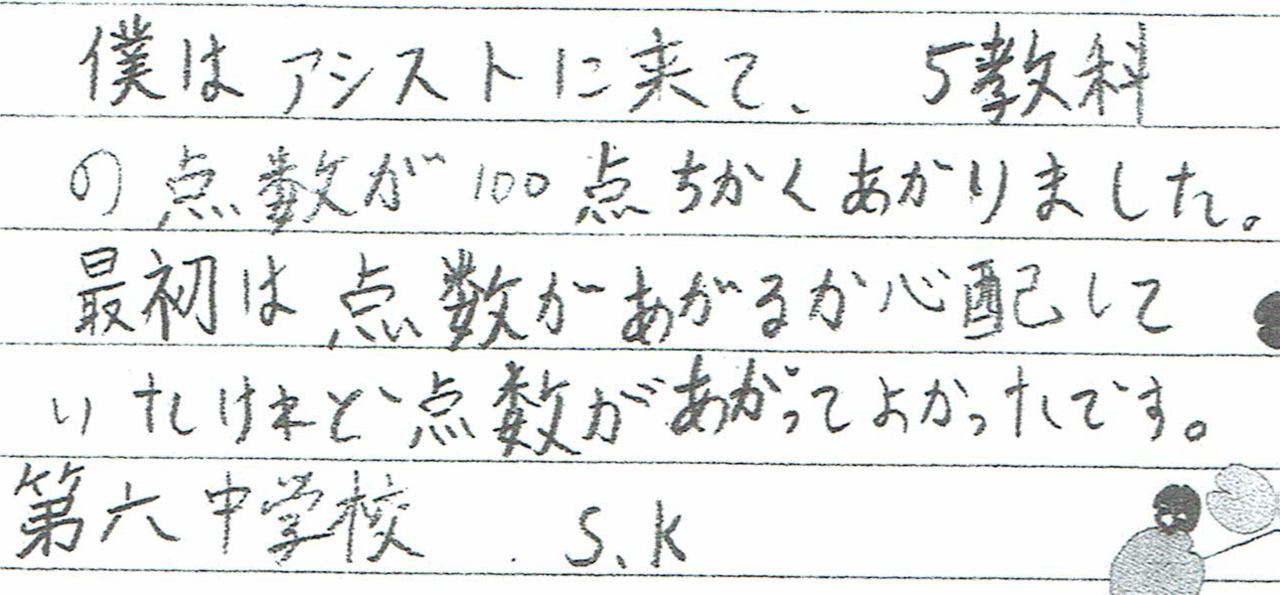 僕はアシストに来て、 5教科
の点数が100点ちかくあがりました。
最初は点数があがるか心配して
いたけれど点数があがってよかったです。
第六中学校 S.K